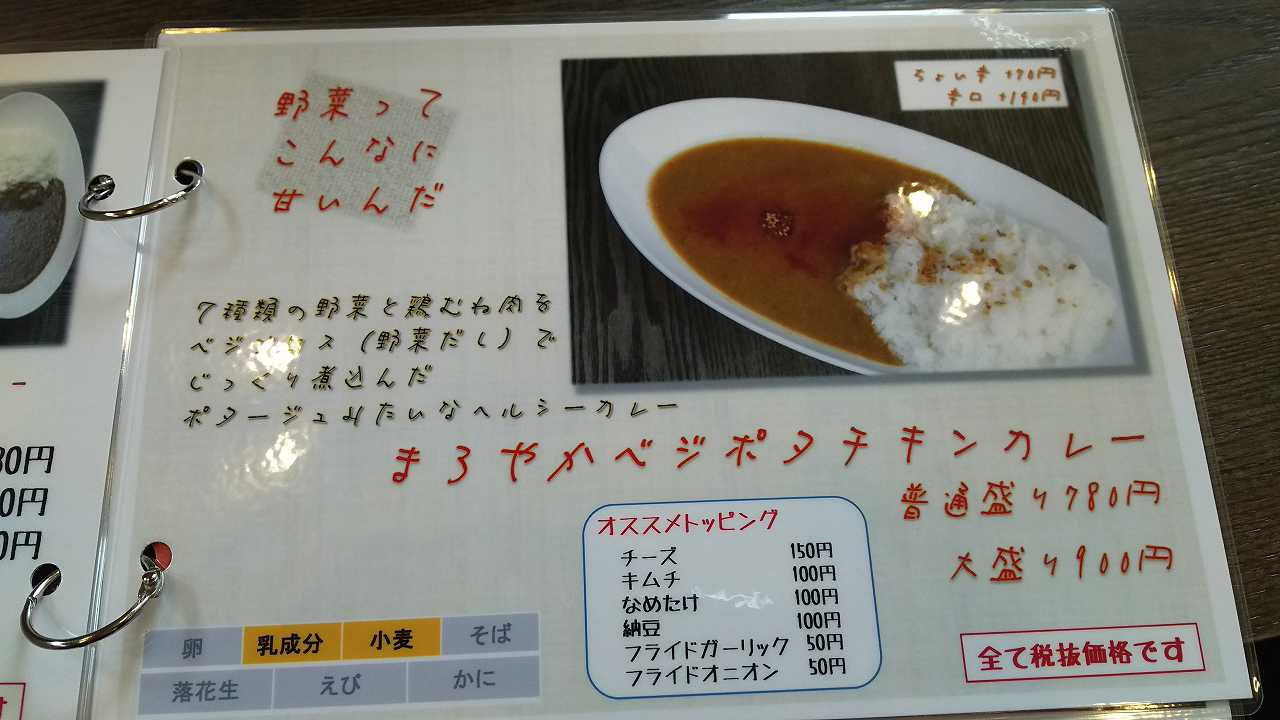 野菜って
こんなに
甘いんだ
ちょい辛 +90円
辛口 +190円
7種類の野菜と鶏むね肉を
ベジブロス (野菜だし) で
じっくり煮込んだ
ポタージュみたいなヘルシーカレー
まろやかベジポタチキンカレー
普通盛り780円
大盛り900円
オススメトッピング
チーズ 150円
キムチ 100円
なめたけ 100円
納豆 100円
フライドガーリック 50円
フライドオニオン 50円
全て税抜価格です
卵 乳成分 小麦 そば
落花生 えび かに
80円
0円
0円